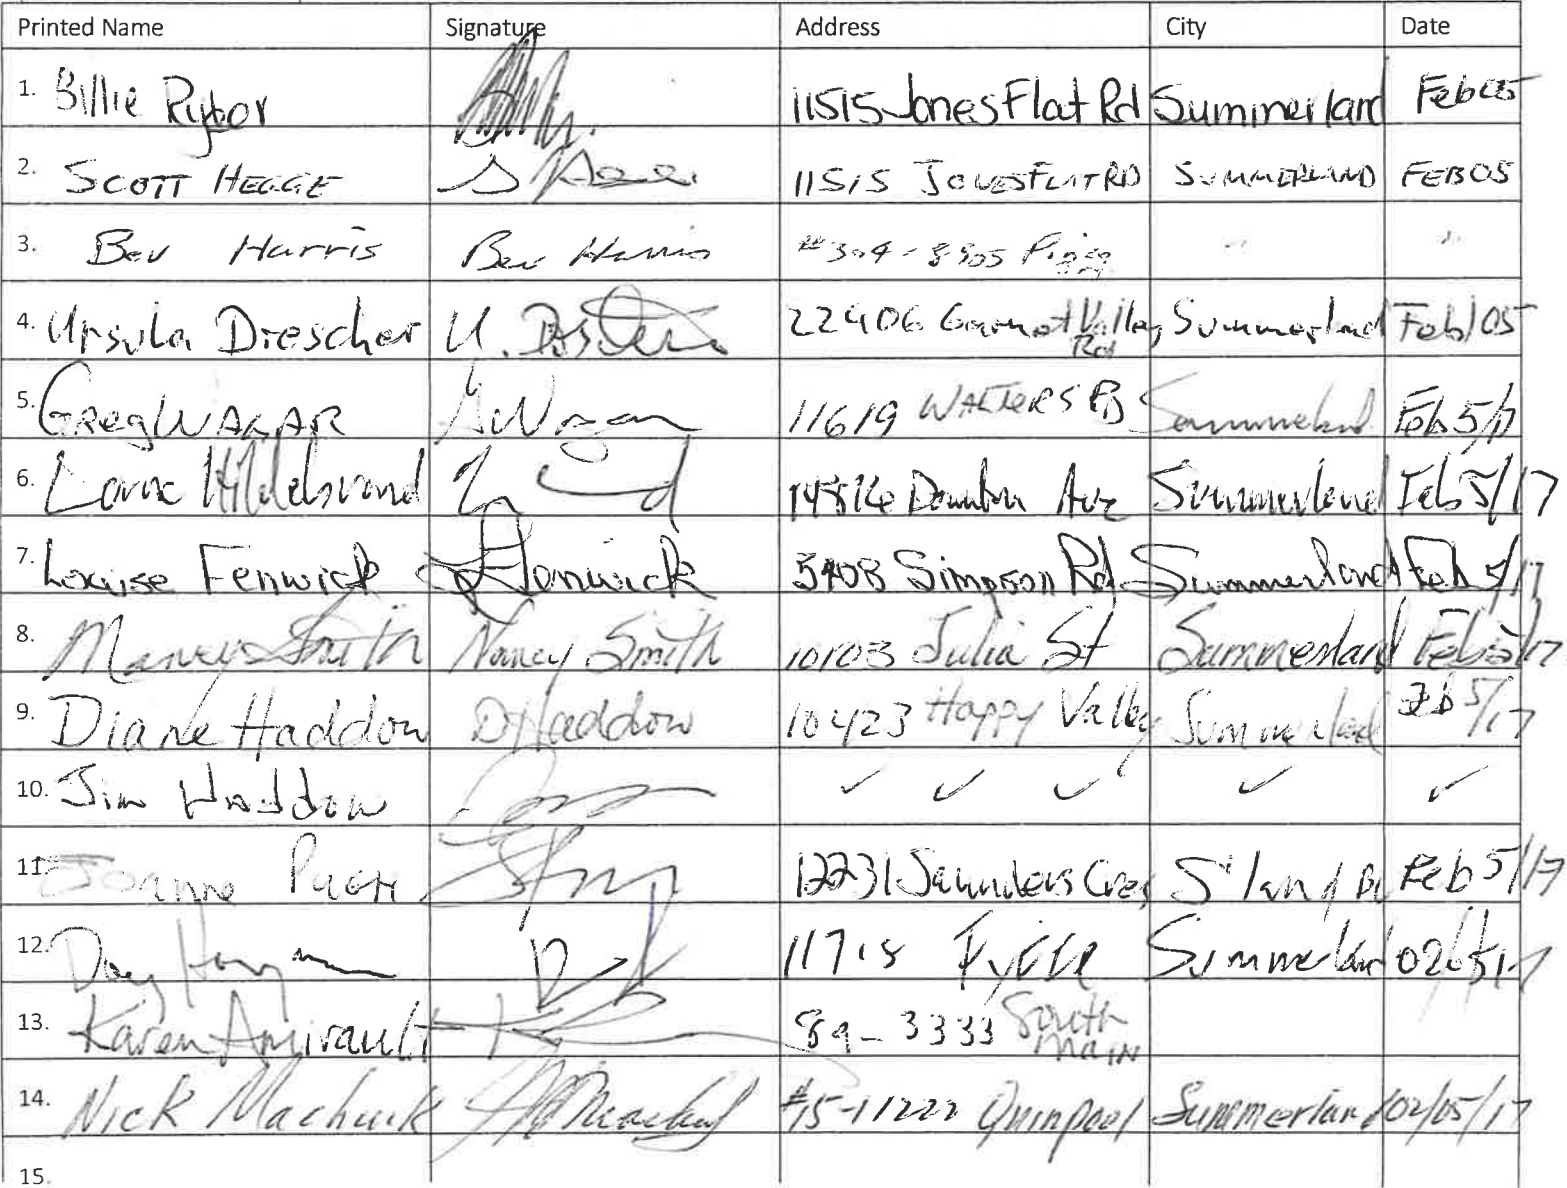 Printed Name Signature Address City Date
1. Billie 11515 Jones Flat Rd Summerland Feb 05
2. SCOTT HEGGE 11515 JONES FLAT RD SUMMERLAND FEB 05
3. Bev Harris Bev Harris #304-8905 " "
4. Ursula Drescher U. 22406 Garnet Valley Rd Summerland Feb/05
5. Greg WAGAR 11619 WALTERS RD Summerland Feb 5/17
6. Hildebrand Ave Summerland Feb 5/17
7. Louise Fenwick Fenwick Simpson Rd Summerland Feb 5/17
8. Nancy Smith Nancy Smith 10103 Julia St Summerland Feb 5/17
9. Diane Haddow D Haddow 10423 Happy Valley Summerland Feb 5/17
10. Jim Haddow ✓ ✓ ✓ ✓ ✓
11. Joanne 12231 Saunders Cres S'land BC Feb 5/17
12. Summerland
13. Karen Amirault 89-3333 South Main
14. Nick #15-11222 Quinpool Summerland 02/05/17
15.